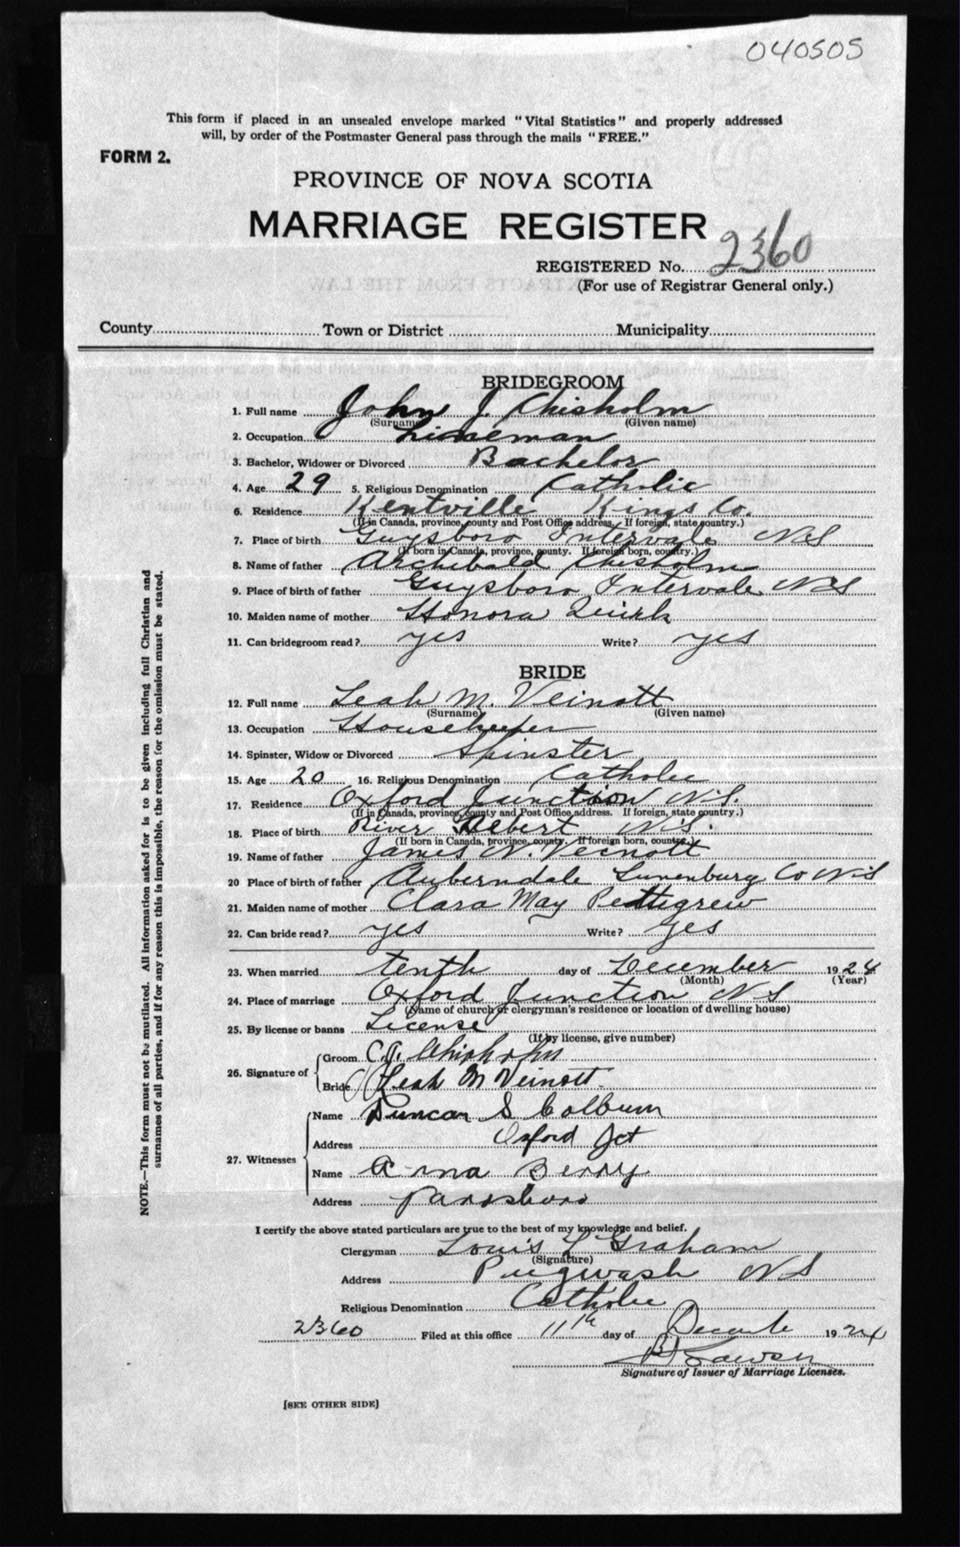 040505
This form if placed in an unsealed envelope marked "Vital Statistics" and properly addressed
will, by order of the Postmaster General pass through the mails "FREE."
FORM 2.
PROVINCE OF NOVA SCOTIA
MARRIAGE REGISTER
REGISTERED No. 2360
(For use of Registrar General only.)
County Town or District Municipality
BRIDEGROOM
1. Full name John J. Chisholm
(Surname) (Given name)
2. Occupation Lineman
3. Bachelor, Widower or Divorced Bachelor
4. Age 29 5. Religious Denomination Catholic
6. Residence Kentville Kings Co.
(If in Canada, province, county and Post Office address. If foreign, state country.)
7. Place of birth Guysboro Intervale NS
(If born in Canada, province, county. If foreign born, country.)
8. Name of father Archibald Chisholm
9. Place of birth of father Guysboro Intervale NS
10. Maiden name of mother Honora Quirk
11. Can bridegroom read? yes Write? yes
BRIDE
12. Full name Leah M. Veinott
(Surname) (Given name)
13. Occupation Housekeeper
14. Spinster, Widow or Divorced Spinster
15. Age 20 16. Religious Denomination Catholic
17. Residence Oxford Junction N.S.
(If in Canada, province, county and Post Office address. If foreign, state country.)
18. Place of birth River Hebert N.S.
(If born in Canada, province, county. If foreign born, country.)
19. Name of father James N. Veinott
20 Place of birth of father Auberndale Lunenburg Co N.S
21. Maiden name of mother Clara May Pettigrew
22. Can bride read? yes Write? yes
23. When married tenth day of December 1924
(Month) (Year)
24. Place of marriage Oxford Junction NS
(Name of church or clergyman's residence or location of dwelling house)
25. By license or banns License
(If by license, give number)
26. Signature of Groom Chisholm
Bride Leah M Veinott
27. Witnesses Name Duncan S Colburn
Address Oxford Jct
Name Berry
Address Parrsboro
I certify the above stated particulars are true to the best of my knowledge and belief.
Clergyman Louis L Graham
(Signature)
Address Pugwash NS
Religious Denomination Catholic
2360 Filed at this office 11th day of Decembe 1924
Signature of Issuer of Marriage Licenses.
[SEE OTHER SIDE]
NOTE.—This form must not be mutilated. All information asked for is to be given including full Christian and
surnames of all parties, and if for any reason this is impossible, the reason for the omission must be stated.